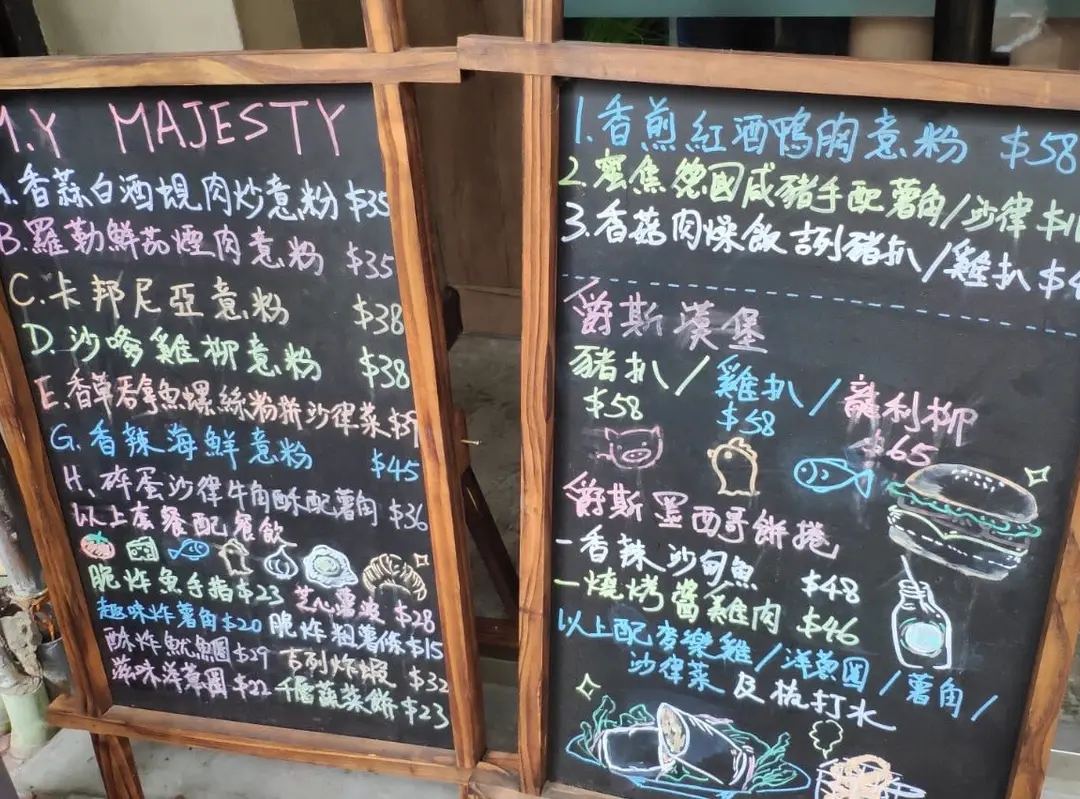 M.Y MAJESTY
A.香蒜白酒蜆肉炒意粉 $35
B.羅勒鮮茄煙肉意粉 $35
C.卡邦尼亞意粉 $38
D.沙嗲雞柳意粉 $38
E.香草吞拿魚螺絲粉拼沙律菜
G.香辣海鮮意粉 $45
H.碎蛋沙律牛角酥配薯角 $36
以上套餐配餐飲
脆炸魚手指 $23 芝心薯波 $28
趣味炸薯角 $20 脆炸粗薯條 $15
酥炸魷魚圈 $29 吉列炸蝦 $32
滋味洋蔥圈 $22 千層蔬菜餅 $23
1.香煎紅酒鴨胸意粉 $58
2.蜜焦德國咸豬手配薯角/沙律
3.香菇肉燥飯 豬扒/雞扒
爵斯漢堡
豬扒/雞扒/龍利柳
$58 $58 $65
爵斯墨西哥餅捲
-香辣沙甸魚 $48
-燒烤醬雞肉 $46
以上配麥樂雞/洋蔥圈/薯角/
沙律菜 及梳打水